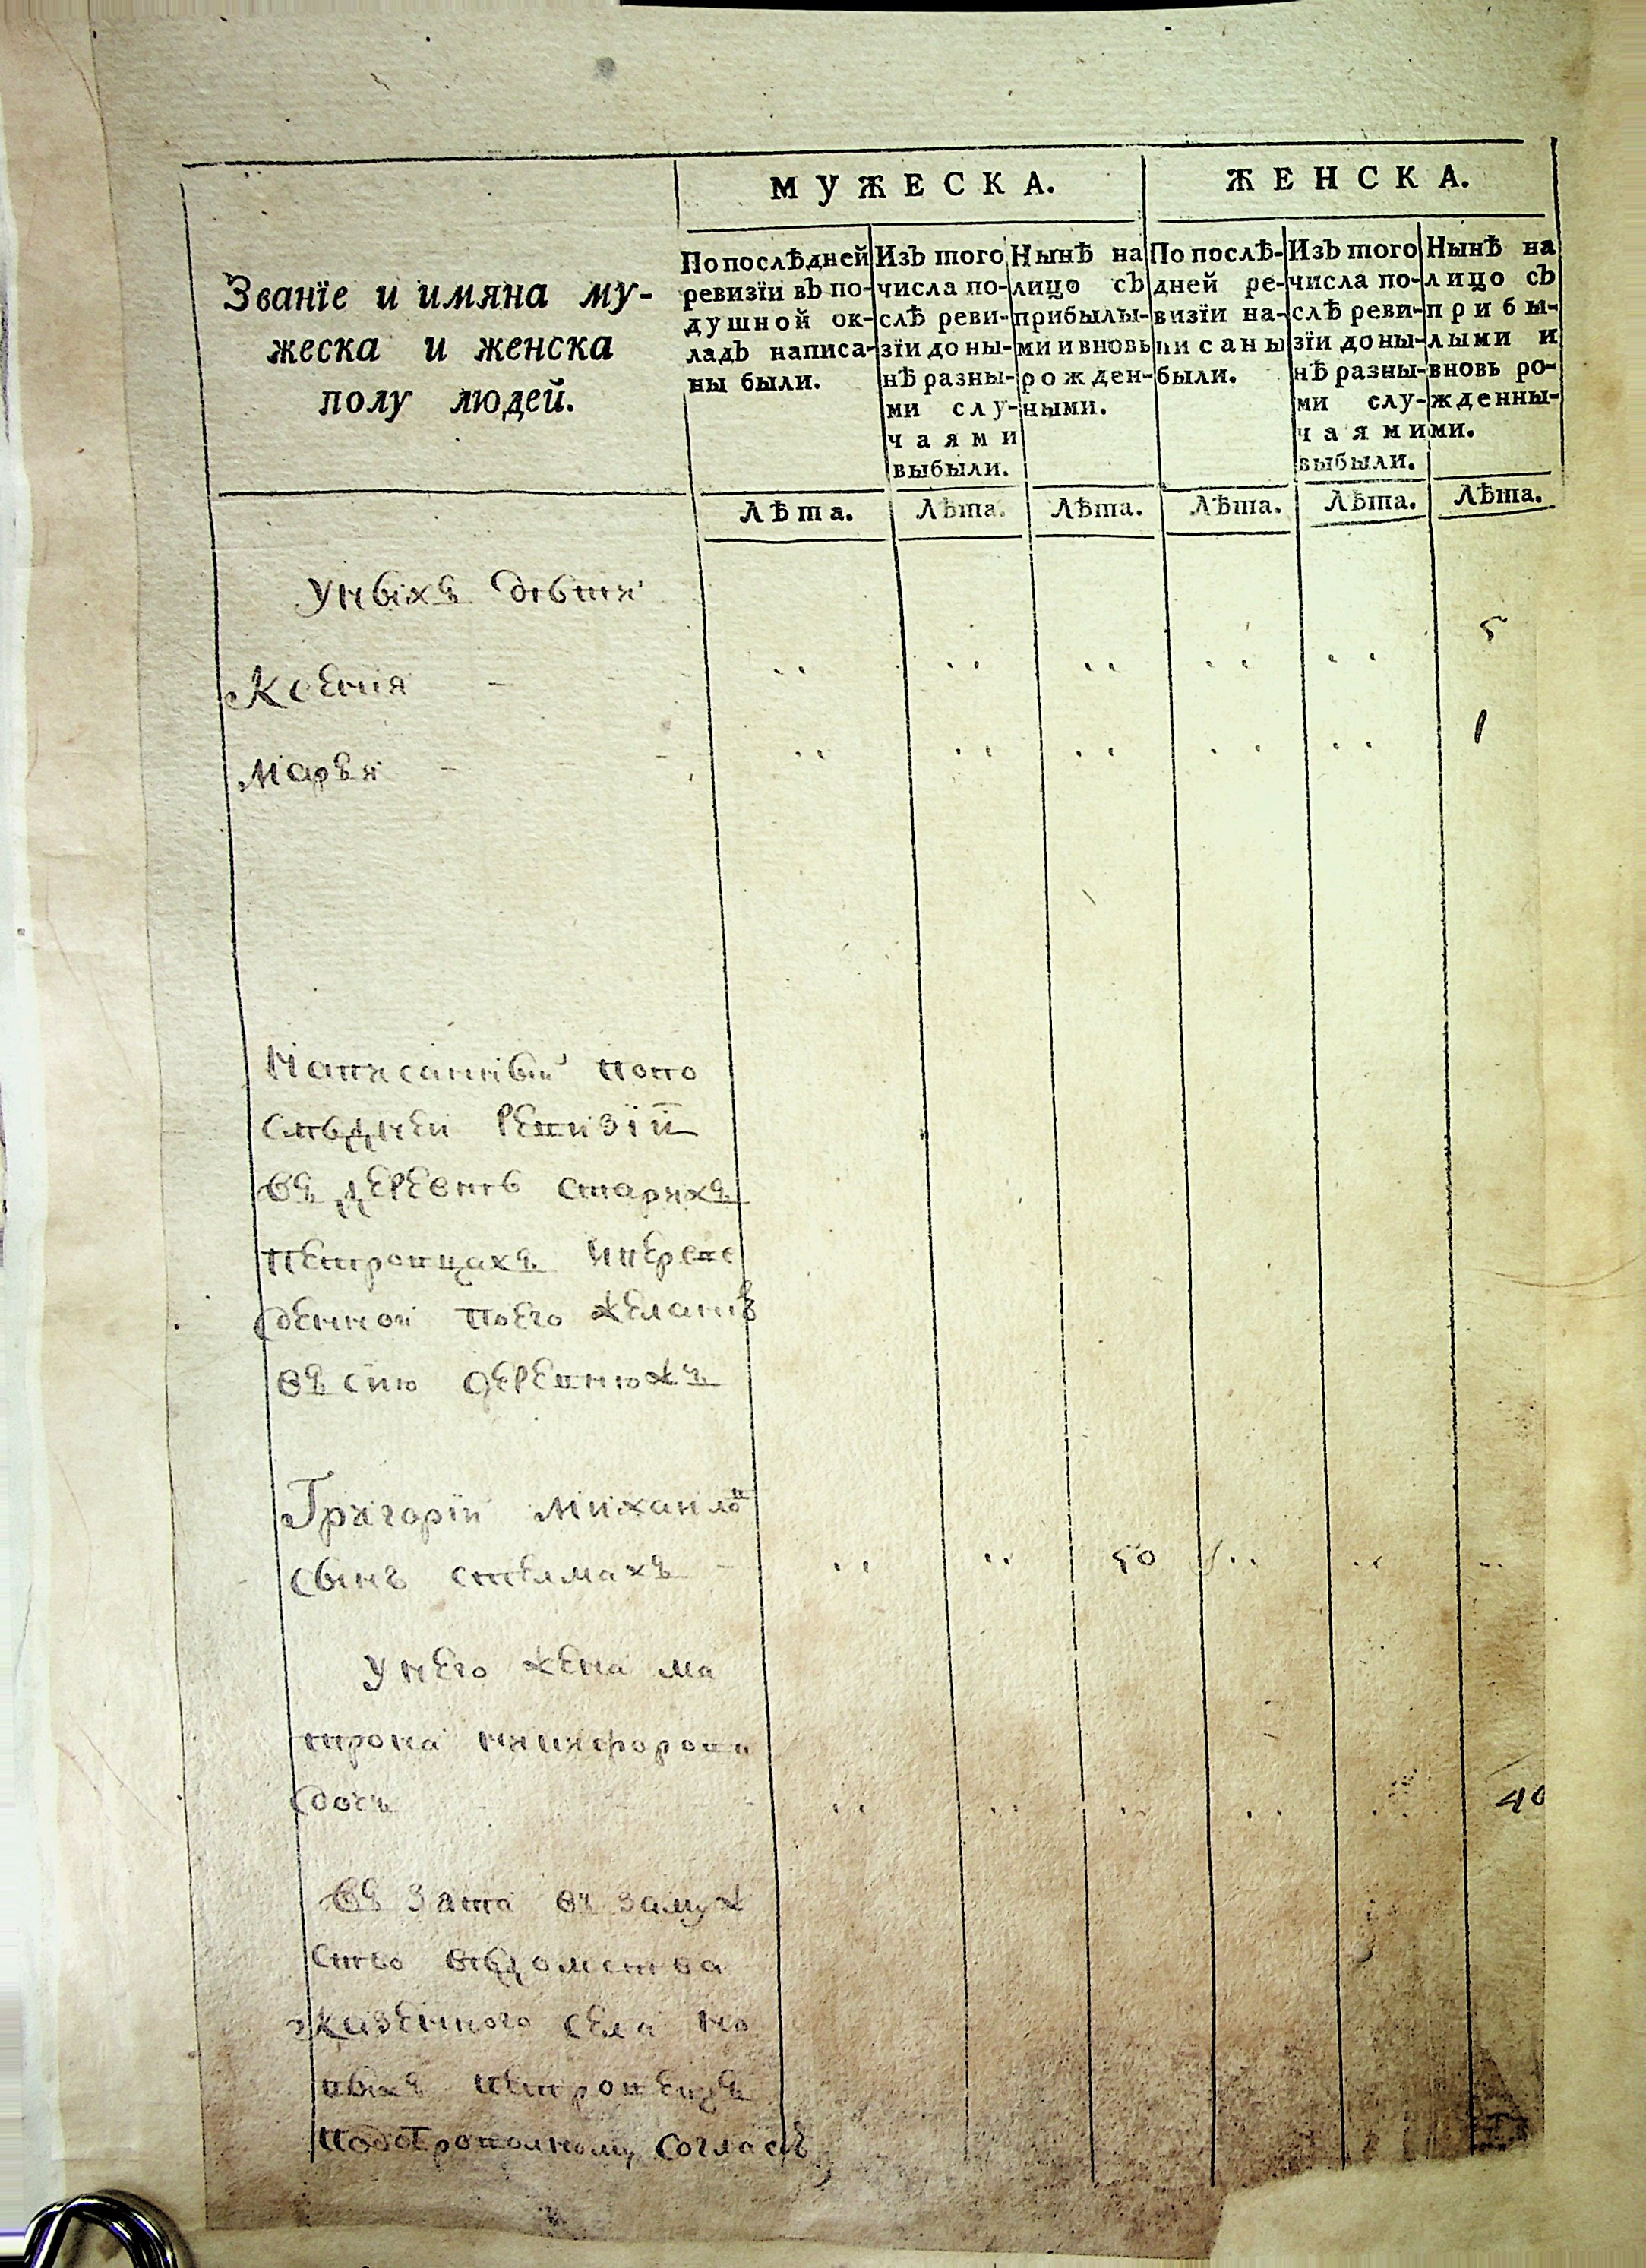 МУЖЕСКА.
ЖЕНСКА.
Званїе и имяна му-
жеска и женска
полу людей.
По послѣдней
ревизїи въ по-
душной ок-
ладъ написа-
ны были.
Изъ того
числа по-
слѣ реви-
зїи до ны-
нѣ разны-
ми слу-
чаями
выбыли.
Нынѣ на
лицо съ
прибылы-
ми и вновь
рожден-
ными.
По послѣ-
дней ре-
визїи на-
писаны
были.
Изъ того
числа по-
слѣ реви-
зїи до ны-
нѣ разны-
ми слу-
чаями
выбыли.
Нынѣ на
лицо съ
прибы-
лыми и
вновь ро-
жденны-
ми.
Лѣта. Лѣта. Лѣта. Лѣта. Лѣта. Лѣта.
У ныхъ дѣти
Ксенія - .. .. .. .. .. 5
Марья - - - .. .. .. .. .. 1
Написанный по по
слѣдней ревизїи
въ деревнѣ старихъ
петровцахъ и переве
денной по его желанію
въ сїю деревнюжъ
Григорїй михайлов
сынъ стелмахъ - .. .. 50 .. .. ..
У него жена ма
трона никифорова
дочь .. .. .. .. .. 40
Въ зята въ замуж
ство вѣдомства
казенного села но
выхъ петровецъ
по доброволному согласію